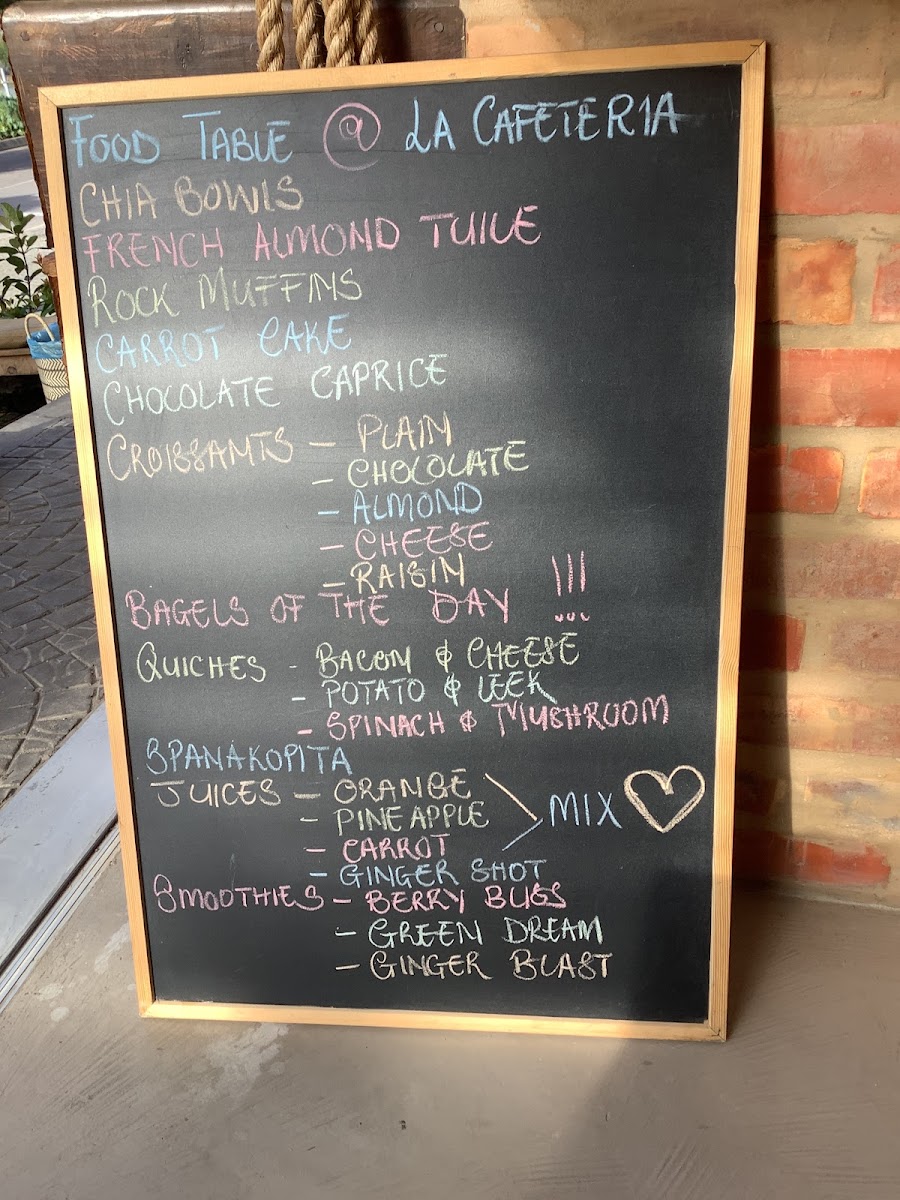 FOOD TABLE @ LA CAFETERIA
CHIA BOWLS
FRENCH ALMOND TUILE
ROCK MUFFINS
CARROT CAKE
CHOCOLATE CAPRICE
CROISSANTS - PLAIN
- CHOCOLATE
- ALMOND
- CHEESE
- RAISIN
BAGELS OF THE DAY !!!
QUICHES - BACON & CHEESE
- POTATO & LEEK
- SPINACH & MUSHROOM
SPANAKOPITA
JUICES - ORANGE
- PINEAPPLE
- CARROT
MIX
- GINGER SHOT
SMOOTHIES - BERRY BLISS
- GREEN DREAM
- GINGER BLAST